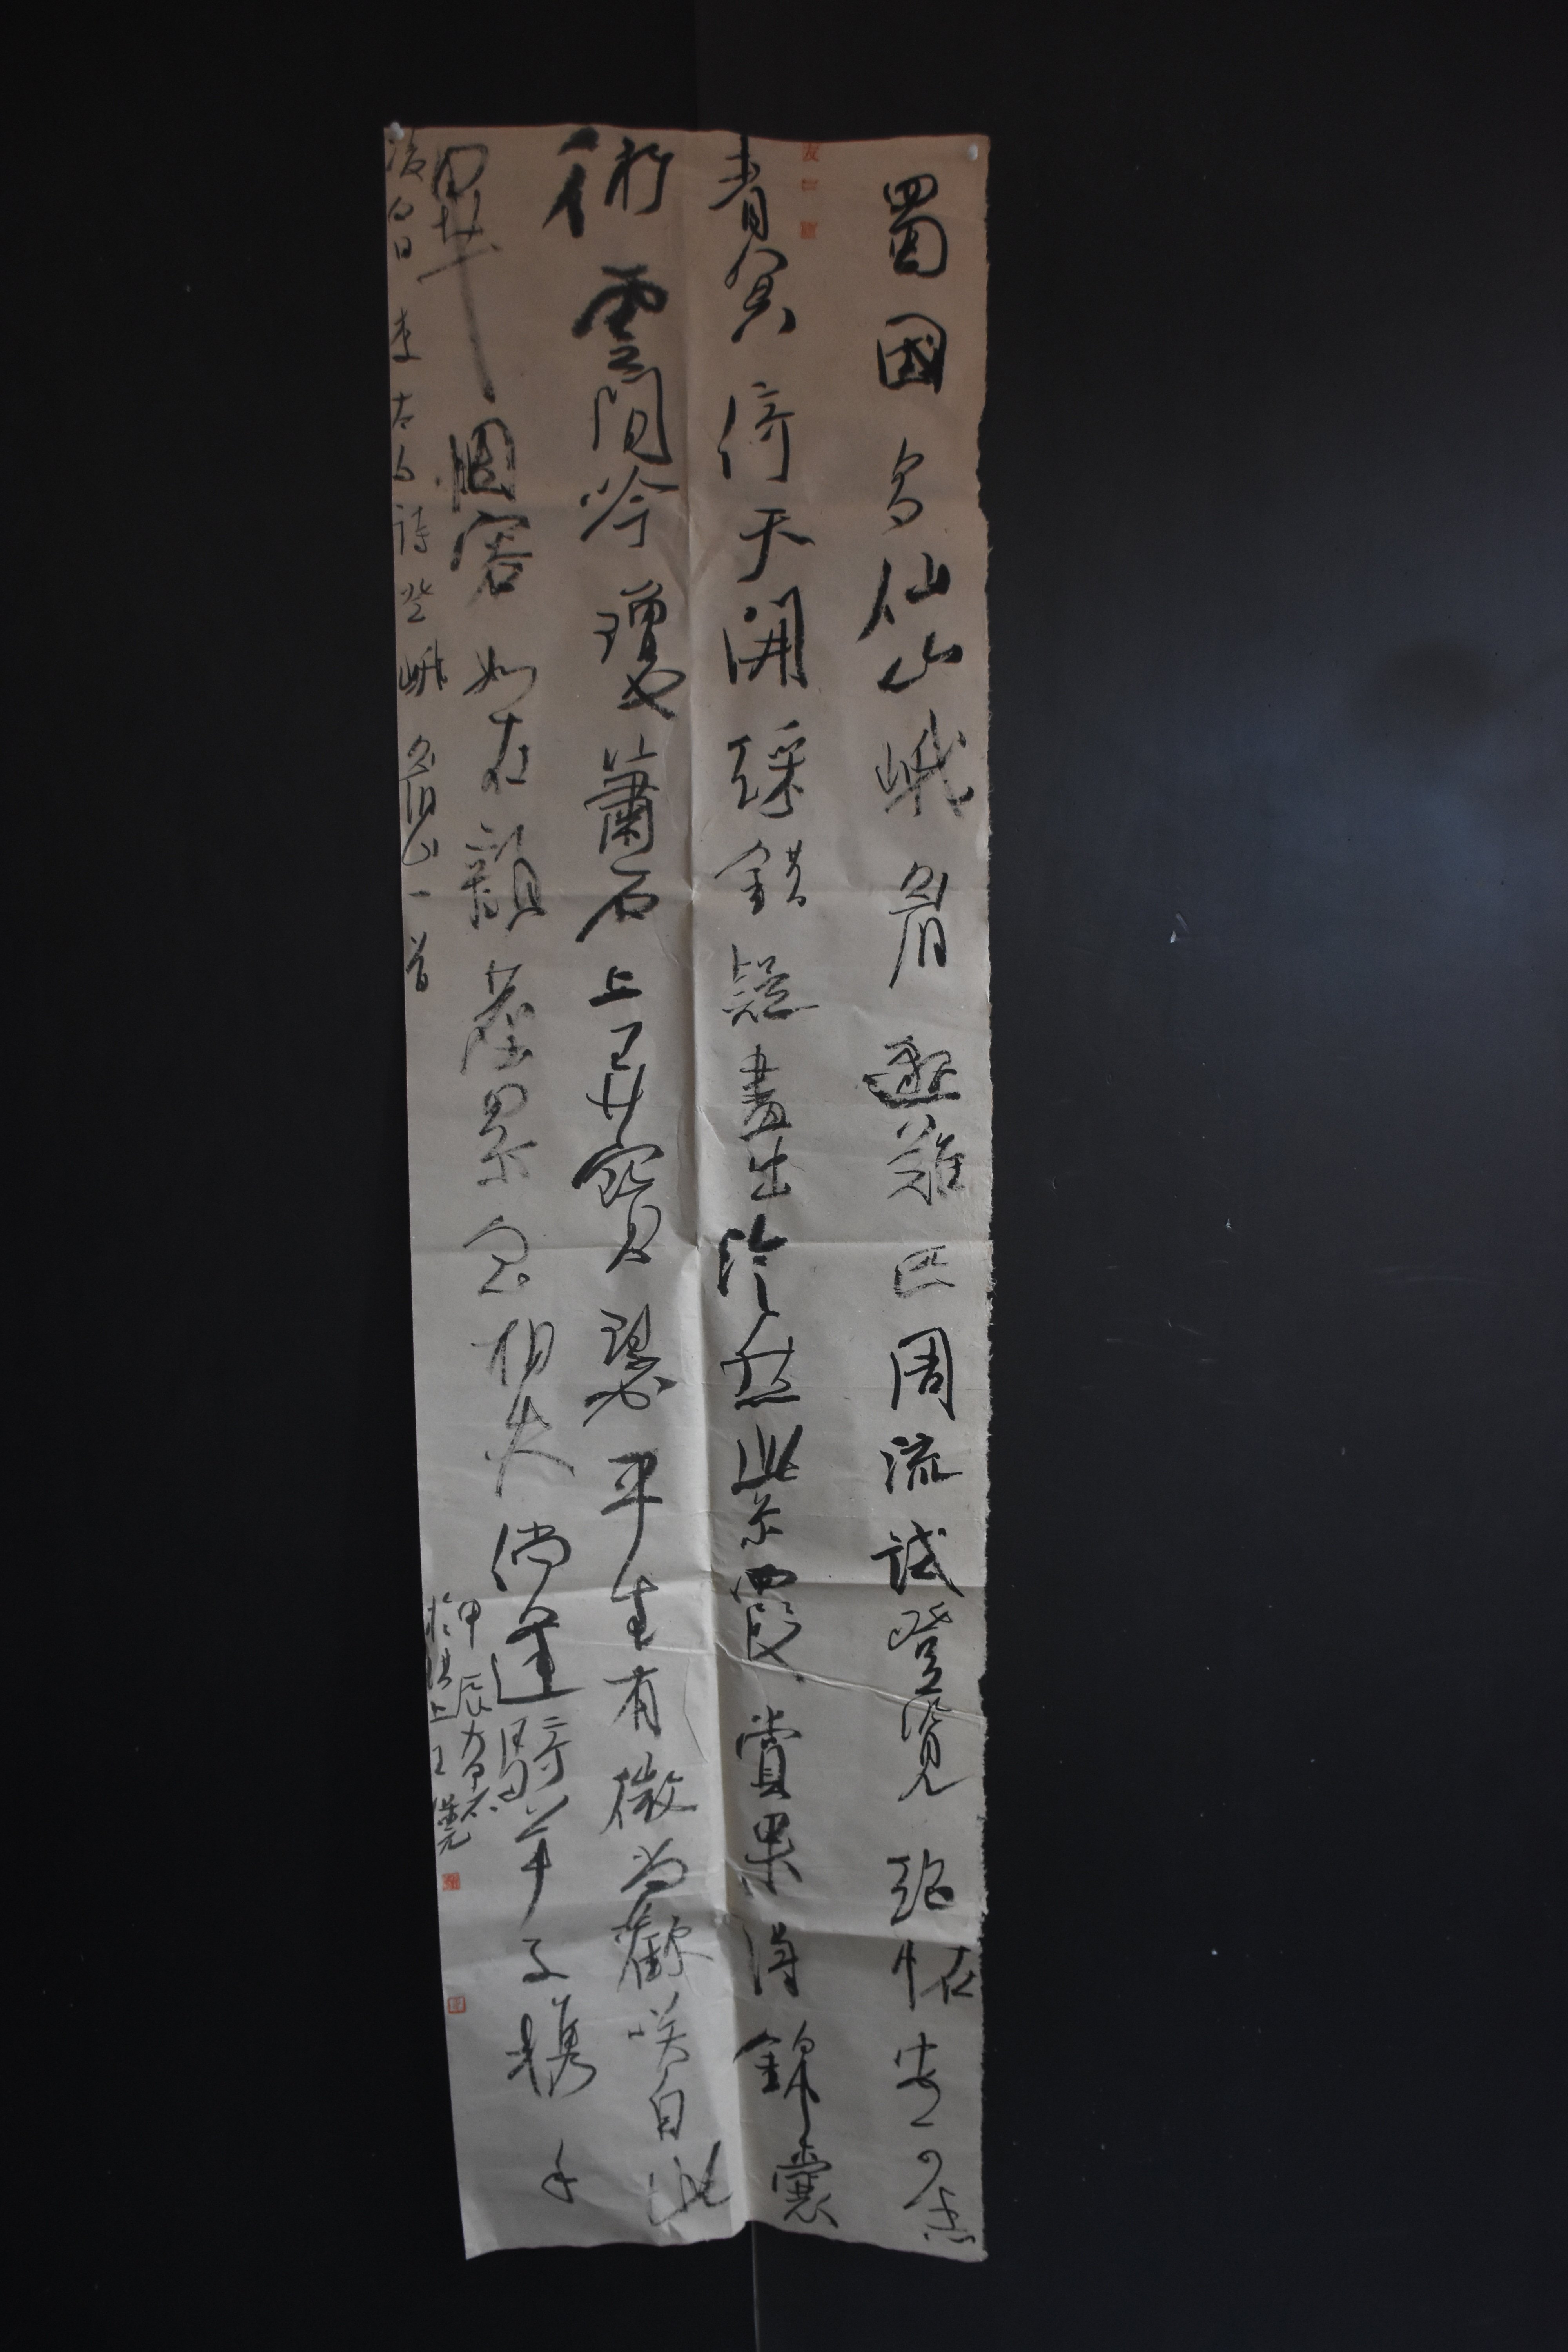 蜀國多仙山峨眉邈難匹周流試登覽絕恠安可悉
青冥倚天開綵錯疑畫出泠然紫霞賞果得錦囊
術雲間吟瓊簫石上弄寶瑟平生有微尚歡咲自此
畢烟容如在顏塵累忽相失倘逢騎羊子携手
凌白日 李太白詩登峨眉山一首
甲辰
於淇上王